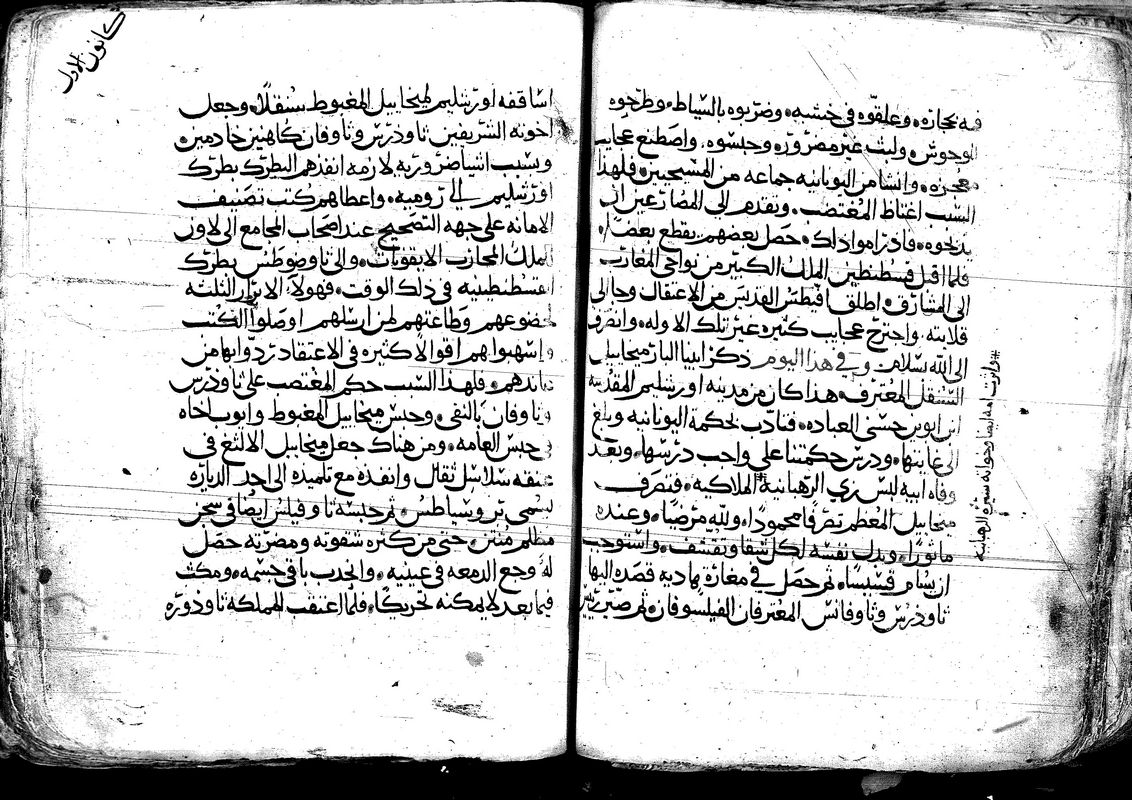 فيه بحجاره، وعلقوه في خشبه، وضربوه بالسياط، وطرحوه
للوحوش، ولبث غير مضرور، وحبسوه، واصطنع عجايب
معجزه، وانشا من اليونانيه جماعه من المسيحيين، فلهذا
السبب اغتاظ المغتصب، وتقدم الى المصارعين ان
يذبحوه، فاذ راموا ذلك، حصل بعضهم يقطع بعضا،
فلما اقبل قسطنطين الملك الكبير من نواحي المغارب
الى المشارق، اطلق افيطس القديس من الاعتقال وجا الى
قلايته، واجترح عجايب كثيره غير تلك الاوله، وانصرف
الى الله بسلام، وفي هذا اليوم ذكر ابينا البار ميخاييل
السنقل المعترف، هذا كان من مدينه اورشليم المقدسه
ابن ابوين حسني العباده، فتادب بحكمه اليونانيه وبلغ
الى غايتها، ودرس حكمتنا على واجب درسها، وبعد
وفاه ابيه لبس زي الرهبانيه الملاكيه، فتصرف
ميخاييل المعظم تصرفا محمودا، ولله مرضيا، وعنده
ماثورا، وبذل نفسه لكل شقا وتقشف، واستوجب
ان يسام قسيسا، ثم حصل في مغارة هاديه قصده اليها
ثاوذرس وثاوفانس المعترفان الفيلسوفان، ثم صير رييس
وانزت امه ايضا وخواته سيرة الرهبانيه
كانون الاول
اساقفه اورشليم لميخاييل المغبوط سنقلا، وجعل
اخوته الشريفين ثاوذرس وثاوفان كاهنين خادمين،
وبسبب اشيا ضروريه لازمه انفذهم البطرك بطرك
اورشليم الى روميه، واعطاهم كتب تصنيف
الامانه على جهه التصحيح عند اصحاب المجامع الى لاون
الملك المحارب الايقونات، والى ثاوضوطس بطرك
القسطنطينيه في ذلك الوقت، فهولا الابرار الثلثه
لخضوعهم وطاعتهم لمن ارسلهم اوصلوا الكتب
واسهبوا لهم اقوالا كثيره في الاعتقاد ردوا بها من
يعاندهم، فلهذا السبب حكم المغتصب على ثاوذرس
وثاوفان بالنفي، وحبس ميخاييل المغبوط وايوب اخاه
في حبس العامه، ومن هناك جعل ميخاييل الالثغ في
عنقه سلاسل ثقال وانفذه مع تلميذه الى احد الدياره
يسمى تروسياطس، ثم حبسه ثاوفيلس ايضا في سجن
مظلم منتن، حتى من كثره شقوته ومضرته حصل
له وجع الدمعه في عينيه، وانحدب باقي جسمه، ومكث
فيما بعد لا يمكنه تحريكا، فلما اعتقبت المملكه ثاوذوره